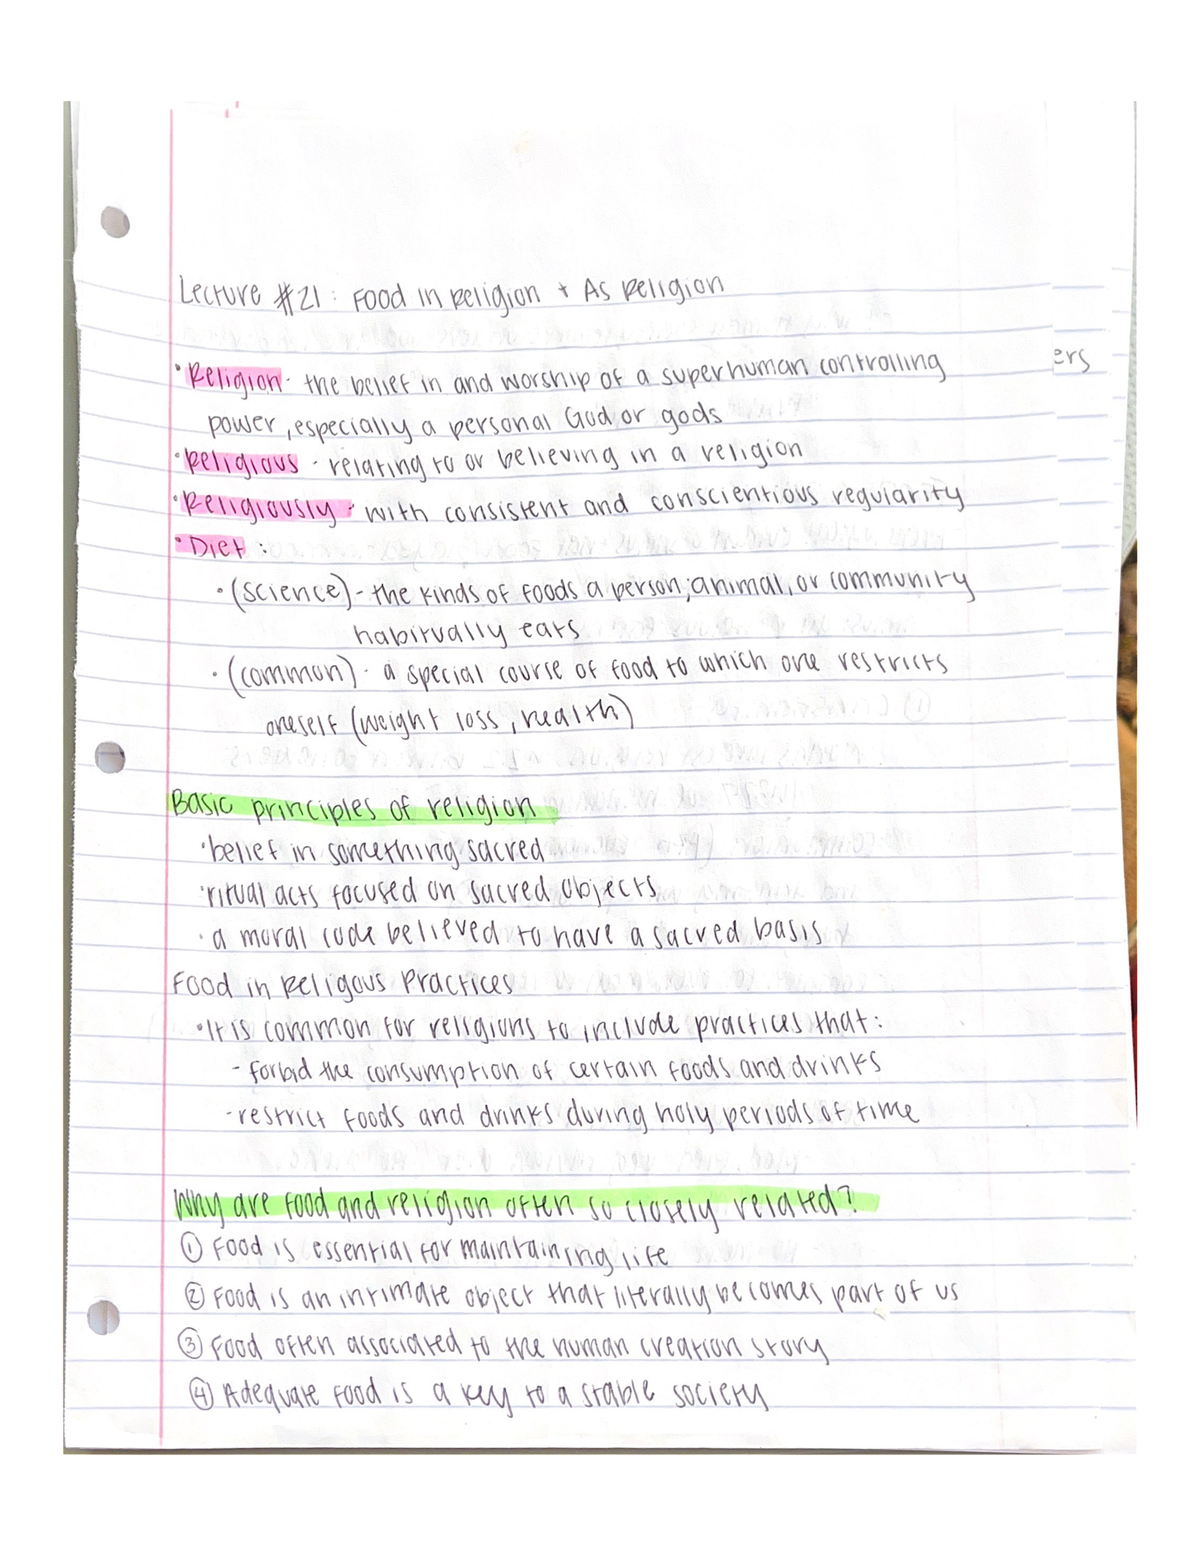 Lecture #21: Food in Religion + As Religion
• Religion - the belief in and worship of a superhuman controlling
ers
power, especially a personal God or gods
• Religious - relating to or believing in a religion
• Religiously - with consistent and conscientious regularity
• Diet:
• (science) - the kinds of foods a person, animal, or community
habitually eats
• (common) - a special course of food to which one restricts
oneself (weight loss, health)
Basic principles of religion
• belief in something sacred
• ritual acts focused on sacred objects
• a moral code believed to have a sacred basis
Food in Religous Practices
• It is common for religions to include practices that:
- forbid the consumption of certain foods and drinks
- restrict foods and drinks during holy periods of time
Why are food and religion often so closely related?
① Food is essential for maintaining life
② Food is an intimate object that literally becomes part of us
③ Food often associated to the human creation story
④ Adequate food is a key to a stable society